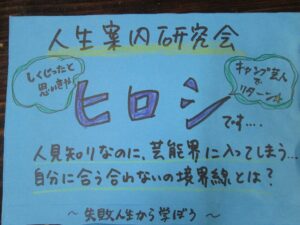 人生案内研究会
しくじったと
思いきや
キャンプ芸人
で
リターン☆
ヒロシ
です....
人見知りなのに、芸能界に入ってしまう...
自分に合う合わないの境界線とは?
~失敗人生から学ぼう~